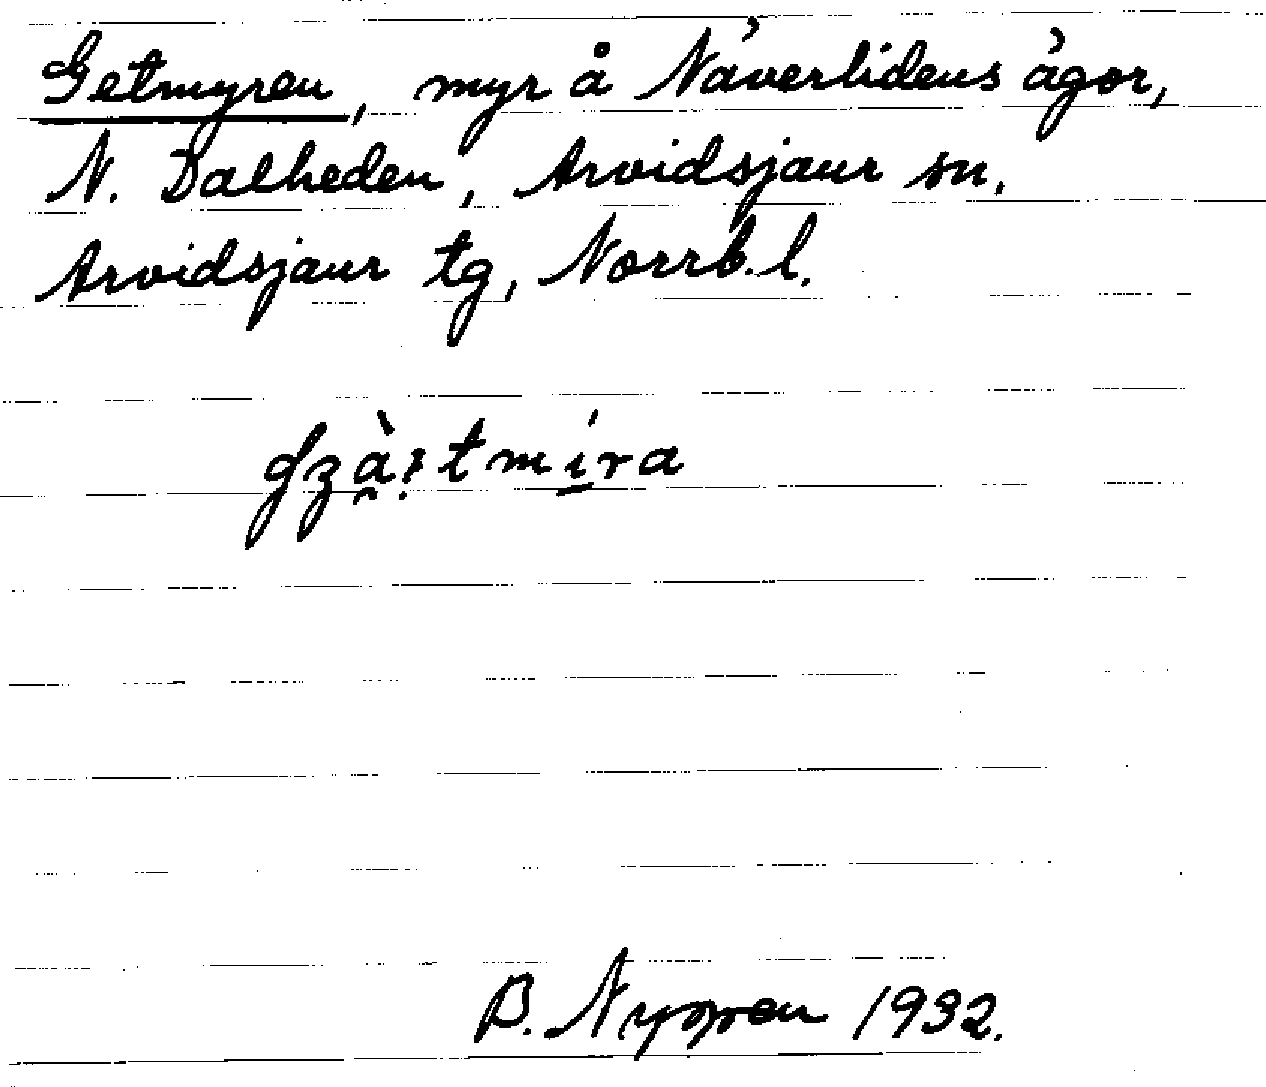 Getmyren, myr å Näverlidens ägor,
N. Dalheden, Arvidsjaur sn.
Arvidsjaur tg, Norrb.l.
B. 1932.